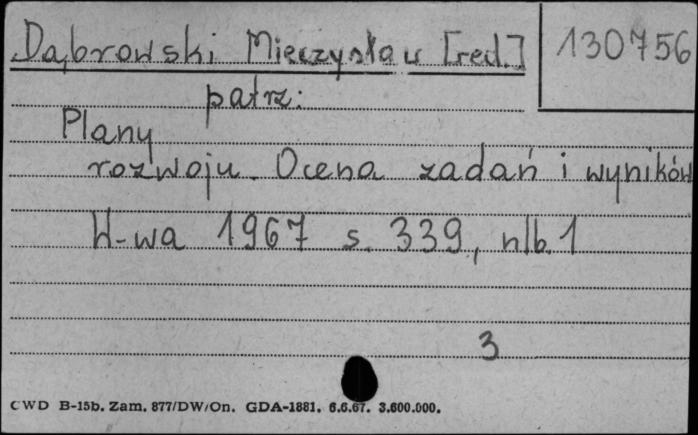 Dąbrowski Mieczysław [red.] 130756
patrz:
Plany
rozwoju. Ocena zadań i wyników
W-wa 1967 s. 339, nlb. 1
3
CWD B-15b. Zam. 877/DW/On. GDA-1881. 6.6.67. 3.600.000.